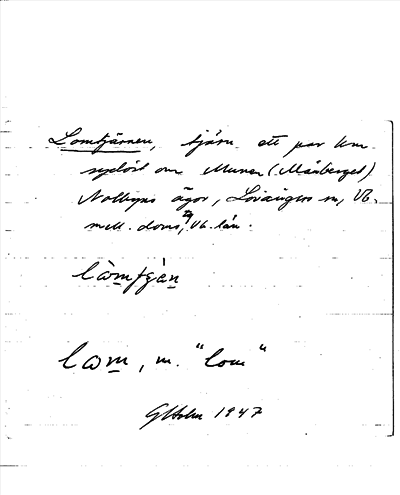 Lomtjärnen, tjärn ett par km
sydost om Muren (Måberget)
Nolbyns ägor, Lövångers sn, Vb.
mell. doms, Vb. län.
làmtjà̀n
lam, m. "lom"
GHolm 1947